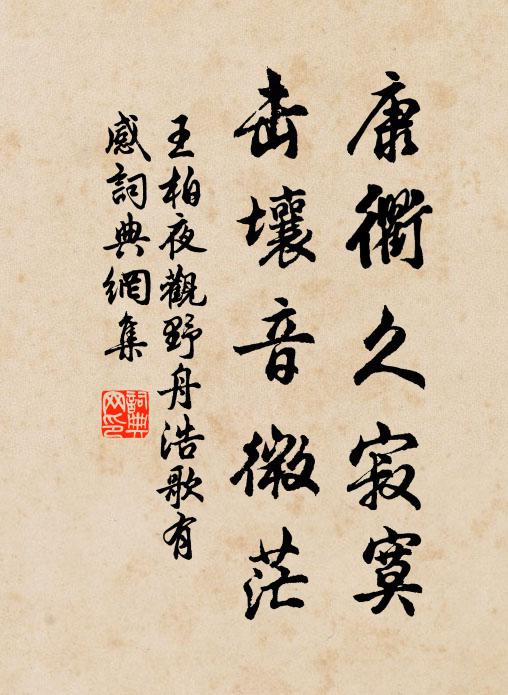 康衢久寂寞
击壤音微茫
王柏夜觀野舟浩歌有
感詞典網集
詞典网印